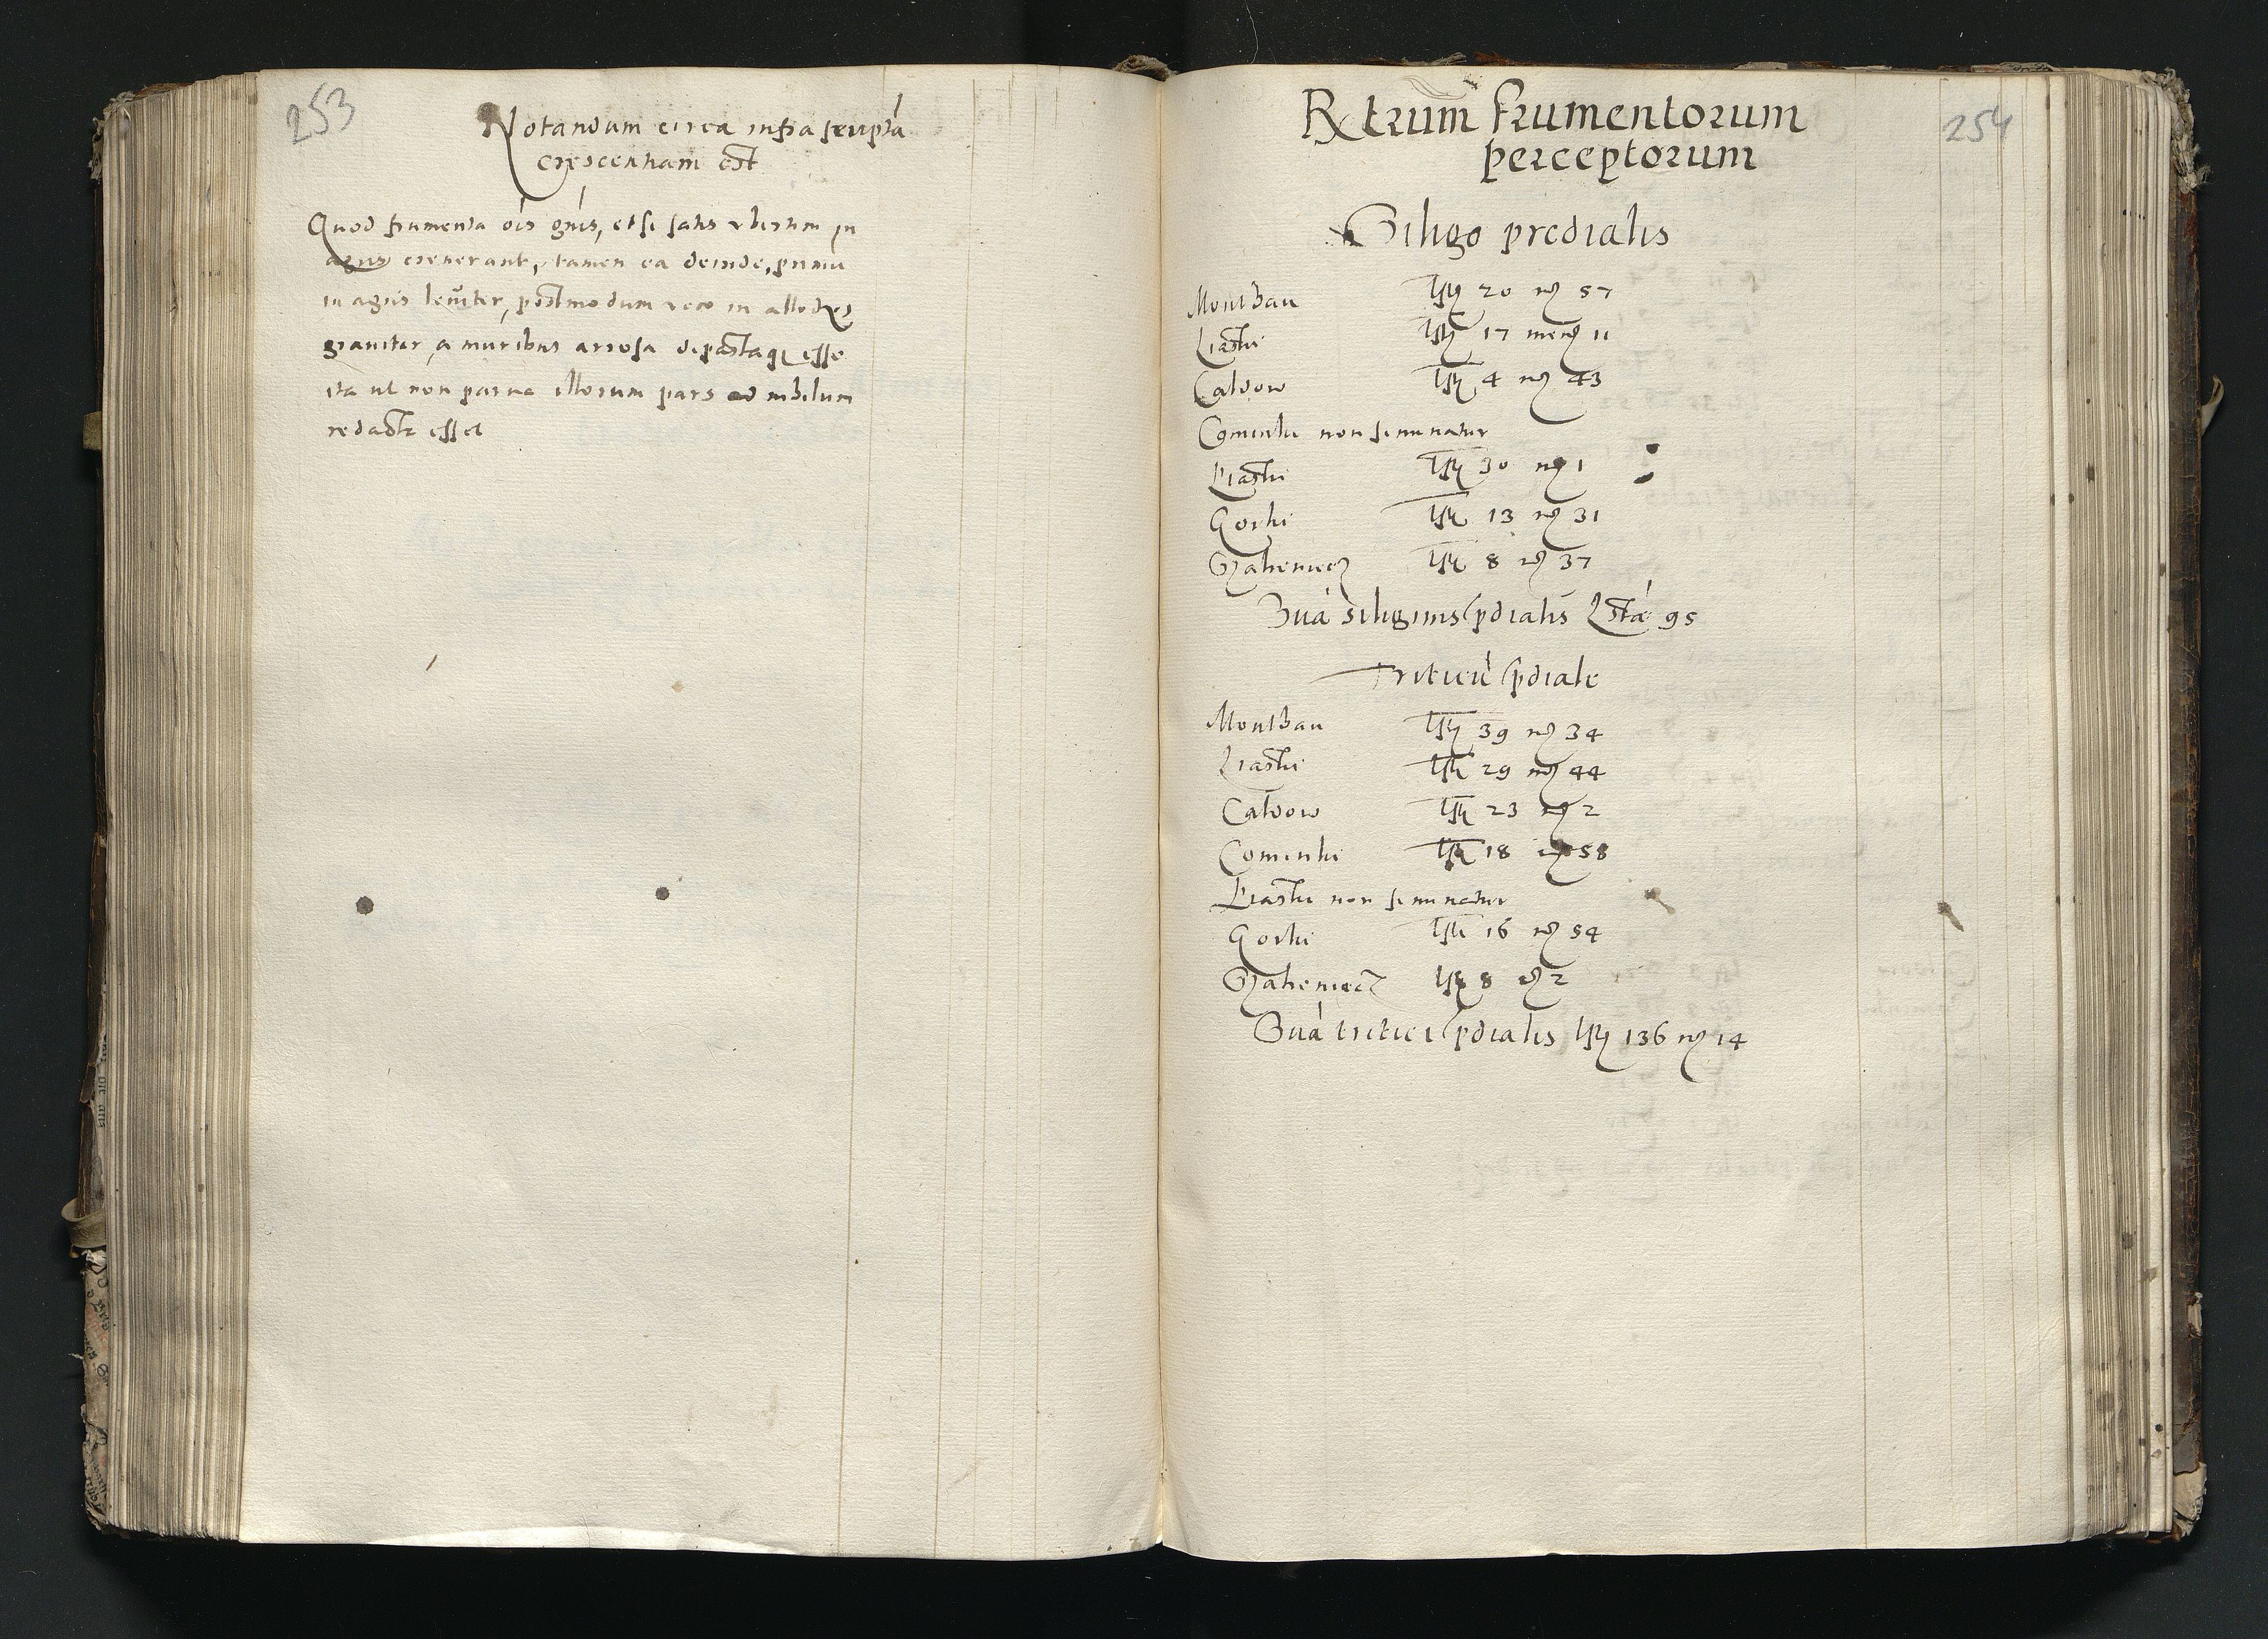 253
Notandum circa infra scripta
crescentiam est
Quod frumenta ois gnis, etsi satis ubertim in
agris creuerant, tamen ea deinde, primu
in agris leuiter, postmodum vero in allodijs
grauiter, a muribus arrosa depastaq esse
ita ut non parua illorum pars ad nihilum
redacta esset
254
Rxtrum frumentorum
perceptorum
Siligo predialis
Montbau lstz 20 mrz 57
Liastki lstz 17 merz 11
Caldow lstz 4 mrz 43
Cominki non seminatur
Liastki lstz 30 mrz 1
Gorki lstz 13 mrz 31
Zahemiecz lstz 8 mrz 37
Sua siliginis pdialis Lsta 95
Triticu pdiale
Montbau lstz 39 mrz 34
Liastki lstz 29 mrz 44
Caldow lstz 23 mrz 2
Cominki lstz 18 mrz 58
Liastki non seminatur
Gorki lstz 16 mrz 54
Zahemiecz lstz 8 mrz 2
Sua tritici pdialis lstz 136 mrz 14